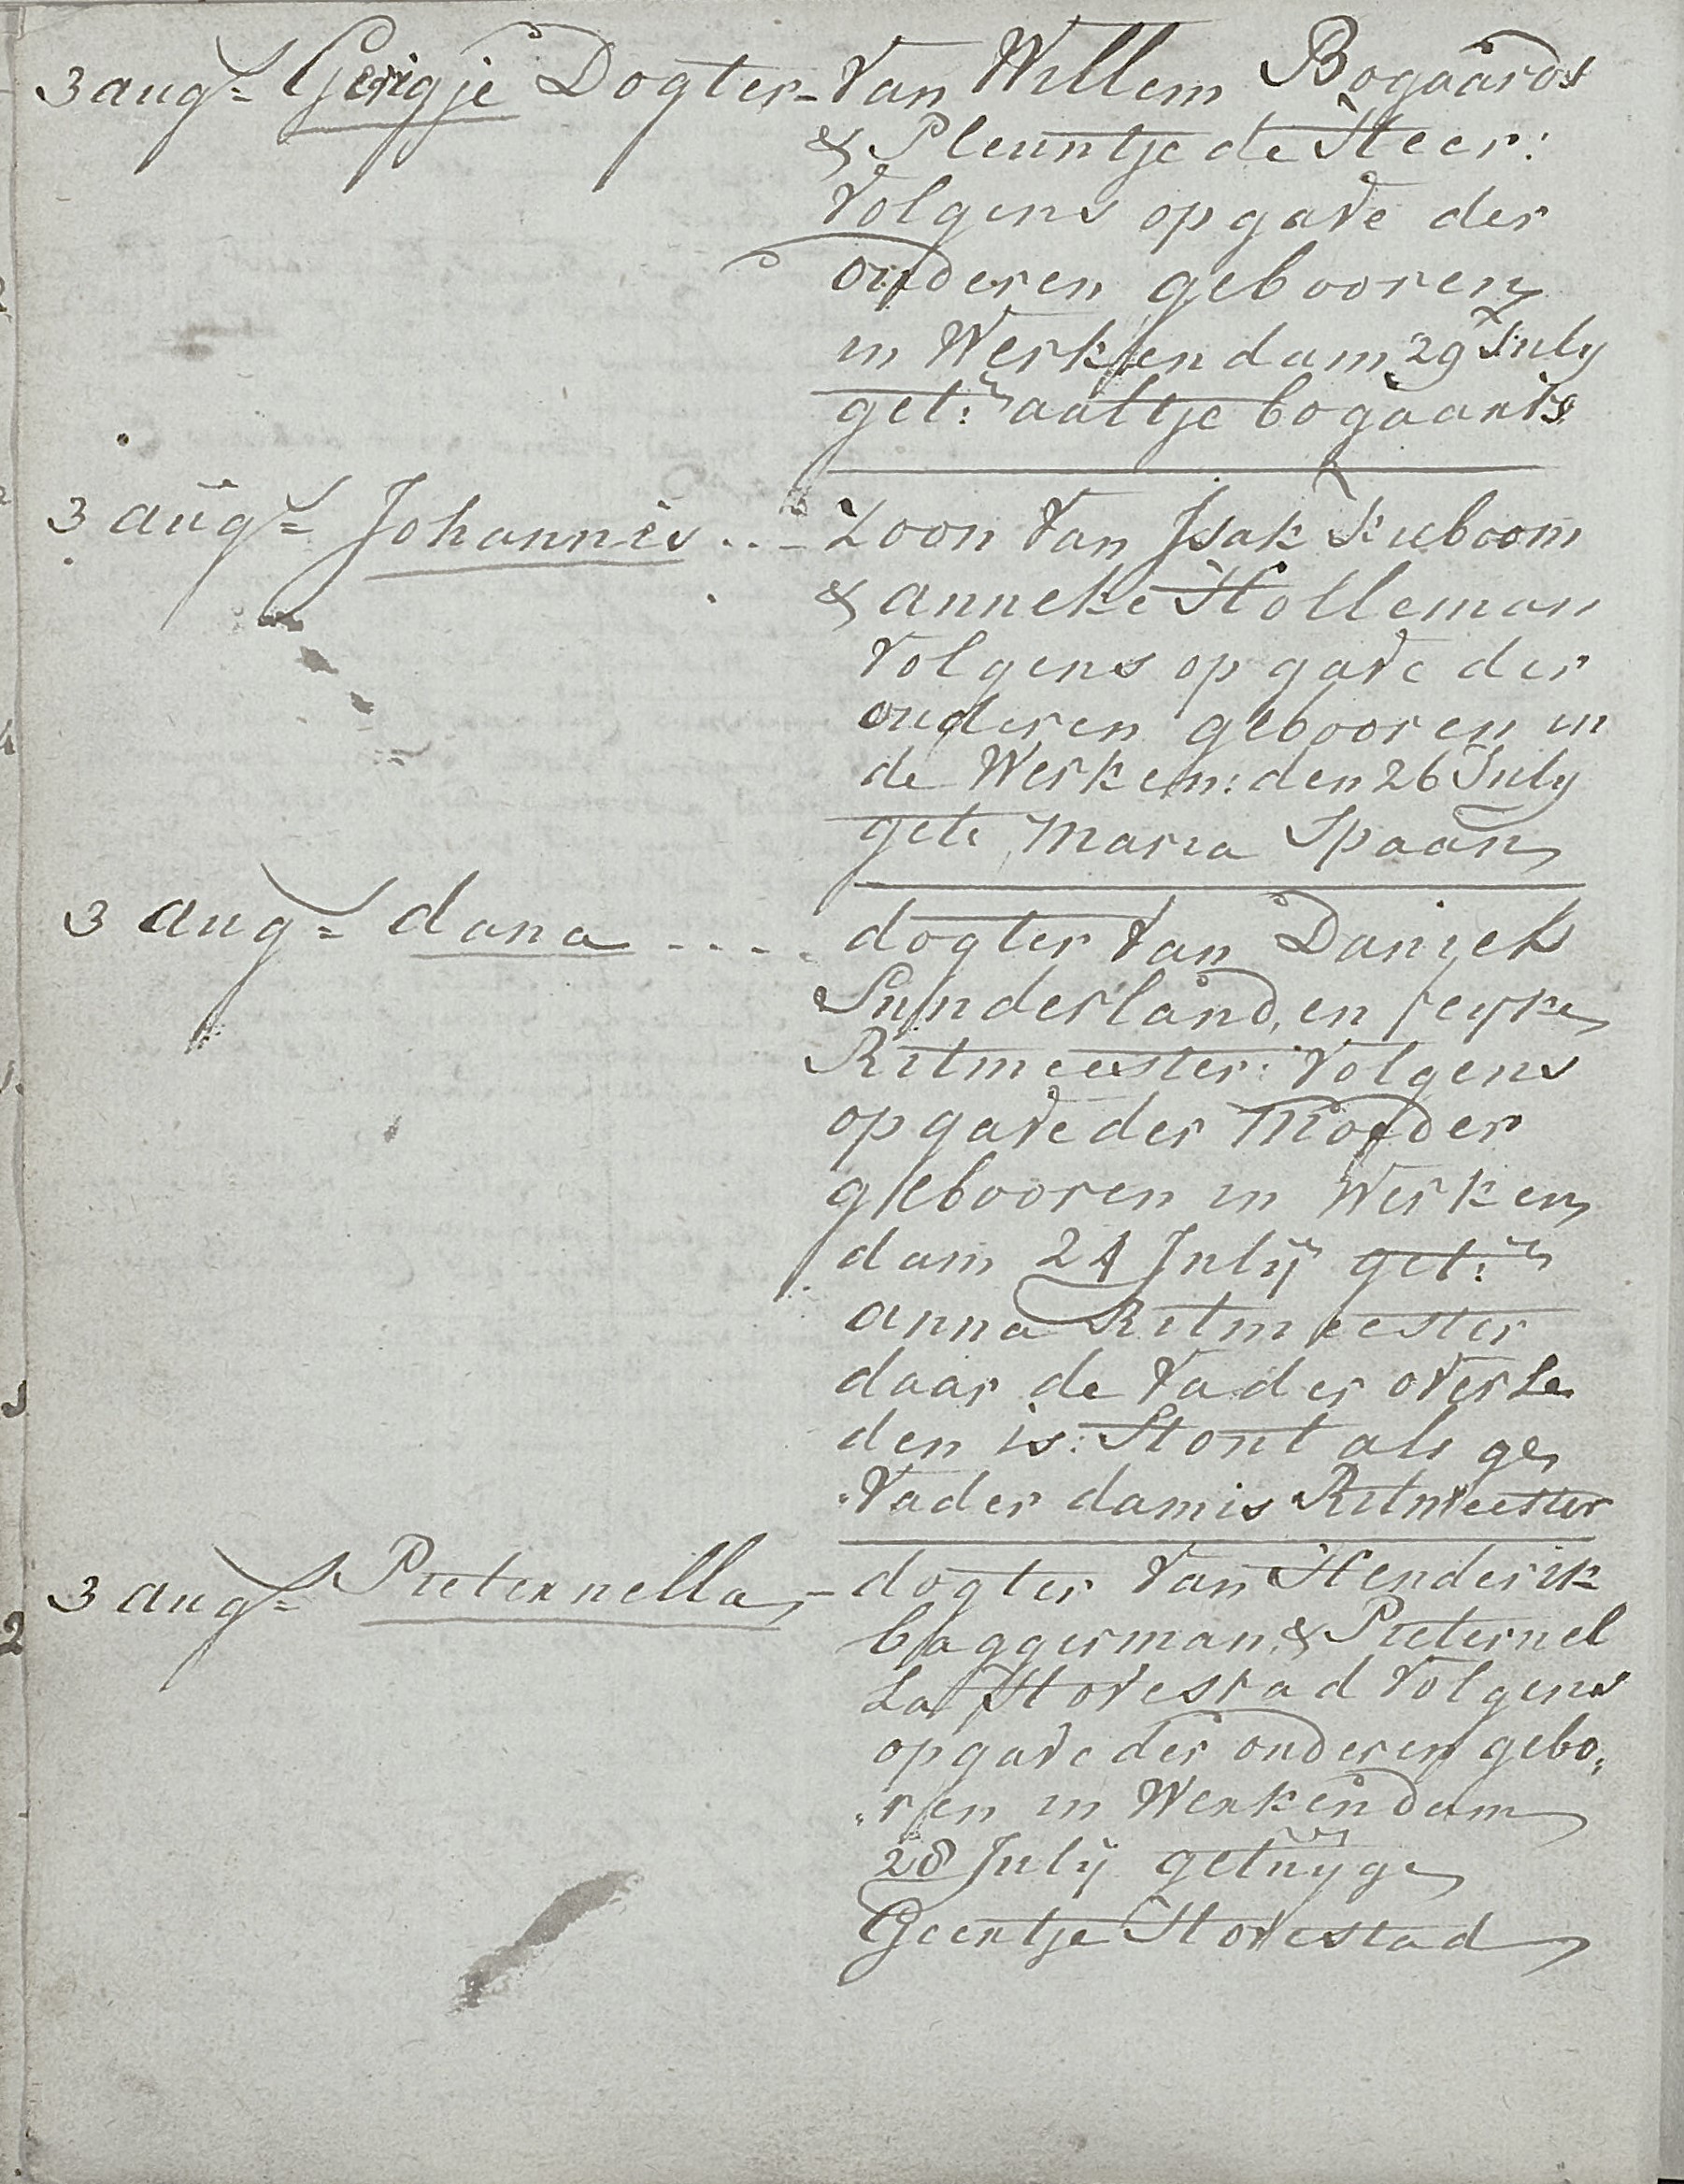 3 aug= Gerigje Dogter - van Willem Bogaards
& Pleuntje de Heer:
volgens opgave der
ouderen gebooren
in Werkendam 29 July
get: aaltje bogaarts
3 aug= Johannis ..- Zoon van Isak Kuboom
& anneke Holleman
volgens opgave der
ouderen gebooren in
de Werken: den 26 July
gete Maria Spaan
3 aug= dana .... dogter van Daniel
Sunderland, en feyke
Ritmeester: volgens
opgave der Moeder
gebooren in Werken
dam 24 Julij get:
anna Ritmeester
daar de vader overle
den is: Stont als ge
vader damis Ritmeester
3 aug= Pieternella - dogter van Henderik
baggerman, & Pieternel
la Hovestad volgens
opgave der ouderen gebo,
,ren in Werkendam
28 Julij getuyge
Geertje Hovestad